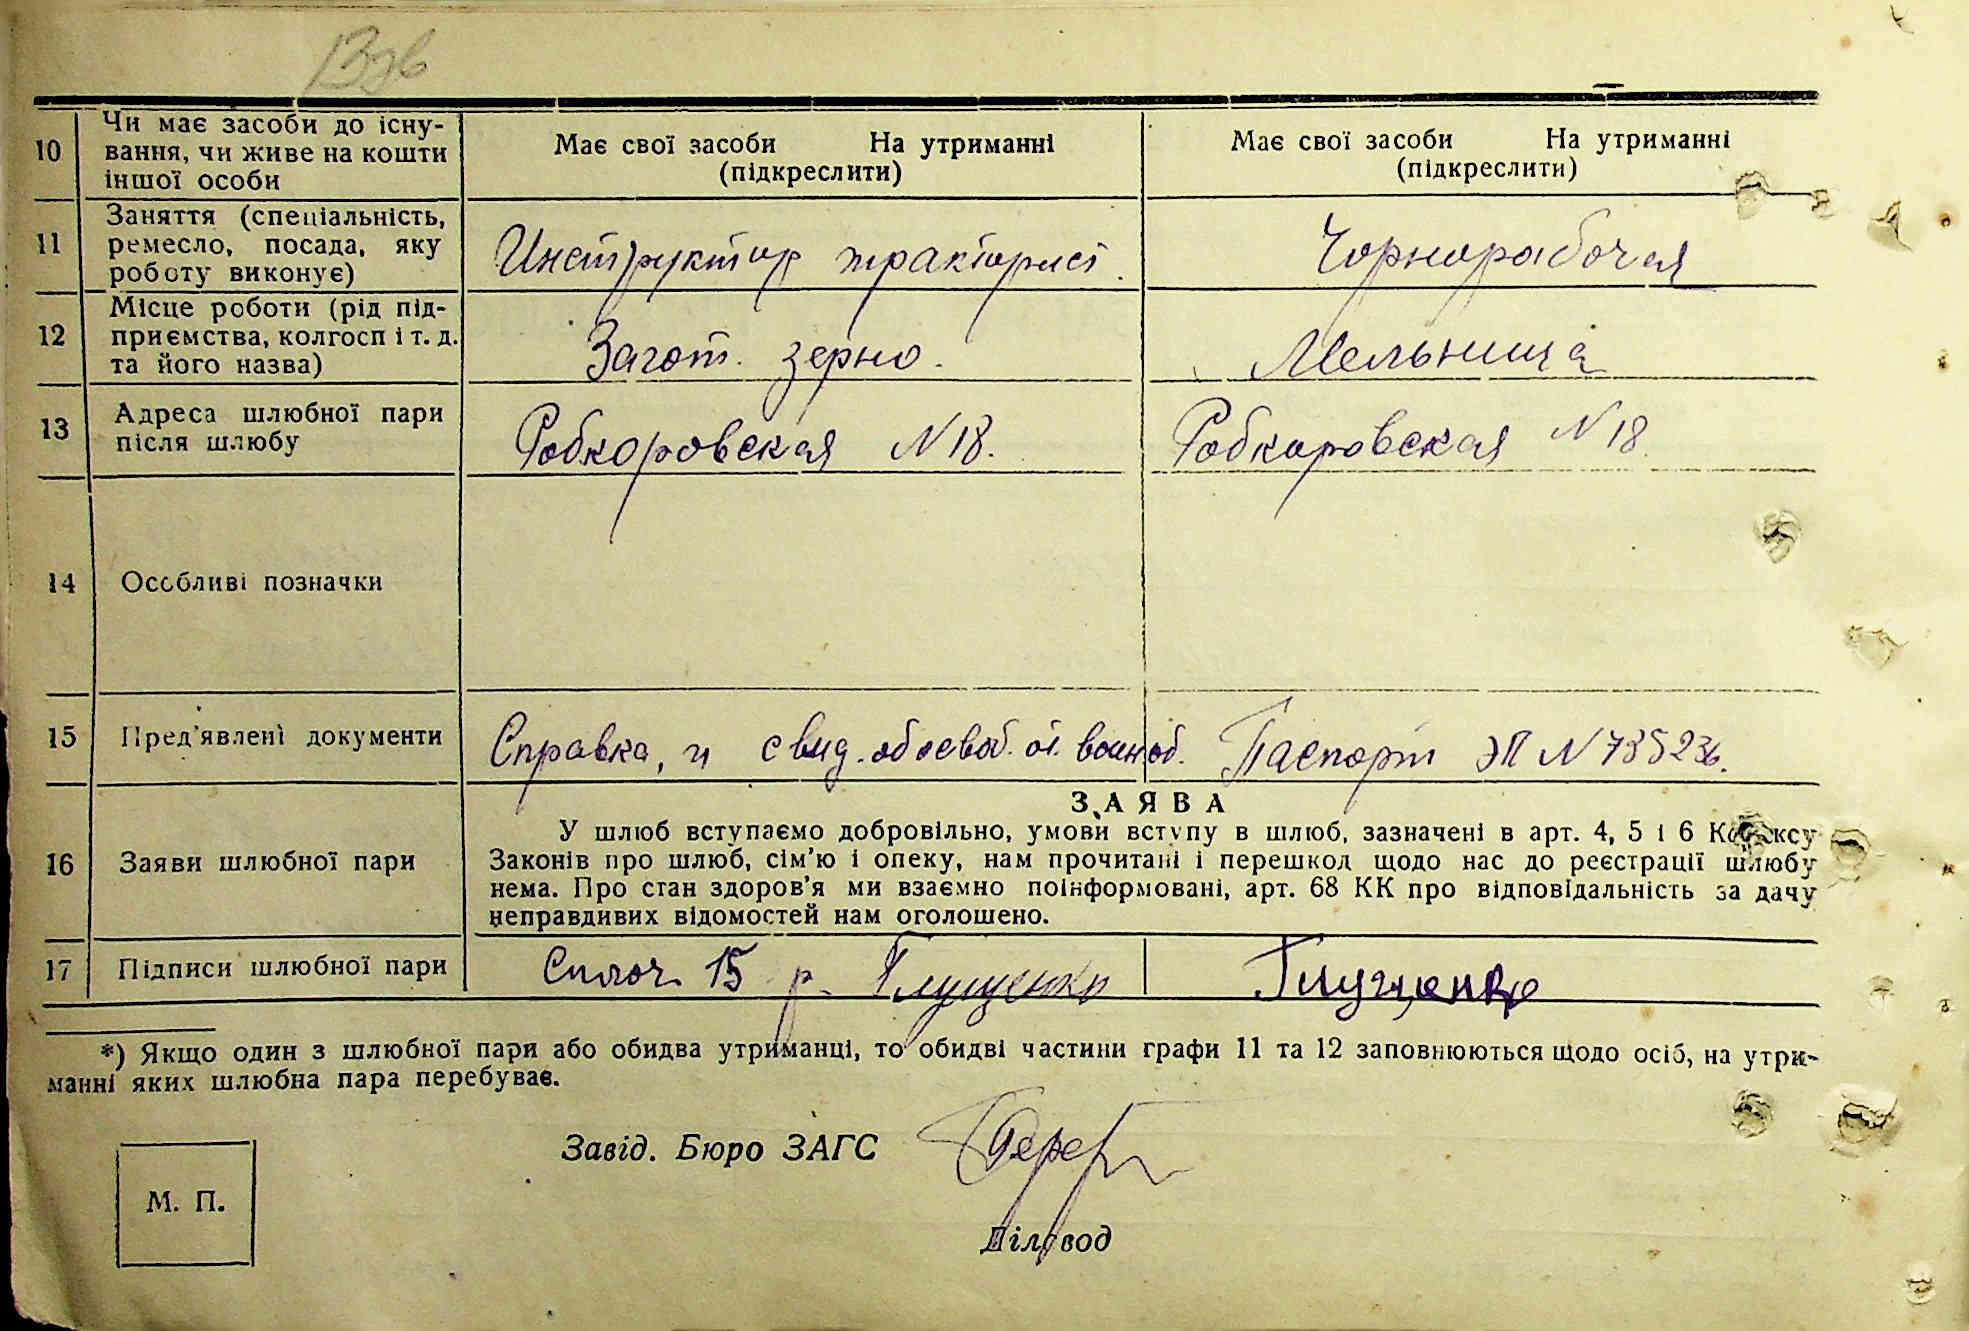 10 Чи має засоби до існу-
вання, чи живе на кошти
іншої особи
Має свої засоби На утриманні
(підкреслити)
Має свої засоби На утриманні
(підкреслити)
11 Заняття (спеціальність,
ремесло, посада, яку
роботу виконує)
Инструктор тракторист.
Чорнорабочая
12 Місце роботи (рід під-
приємства, колгосп і т. д.
та його назва)
Загот. зерно.
Мельница
13 Адреса шлюбної пари
після шлюбу
Рабкоровская N 18.
Рабкоровская N 18.
14 Особливі позначки
15 Пред'явлені документи
Справка, и свид. об освоб. от воин об.
Паспорт ЭП N 735236.
16 Заяви шлюбної пари
ЗАЯВА
У шлюб вступаємо добровільно, умови вступу в шлюб, зазначені в арт. 4, 5 і 6 Кодексу
Законів про шлюб, сім'ю і опеку, нам прочитані і перешкод щодо нас до реєстрації шлюбу
нема. Про стан здоров'я ми взаємно поінформовані, арт. 68 КК про відповідальність за дачу
неправдивих відомостей нам оголошено.
17 Підписи шлюбної пари
15 р. Глущенко
Глущенко
*) Якщо один з шлюбної пари або обидва утриманці, то обидві частини графи 11 та 12 заповнюються щодо осіб, на утри-
манні яких шлюбна пара перебуває.
Завід. Бюро ЗАГС
М. П.
Діловод